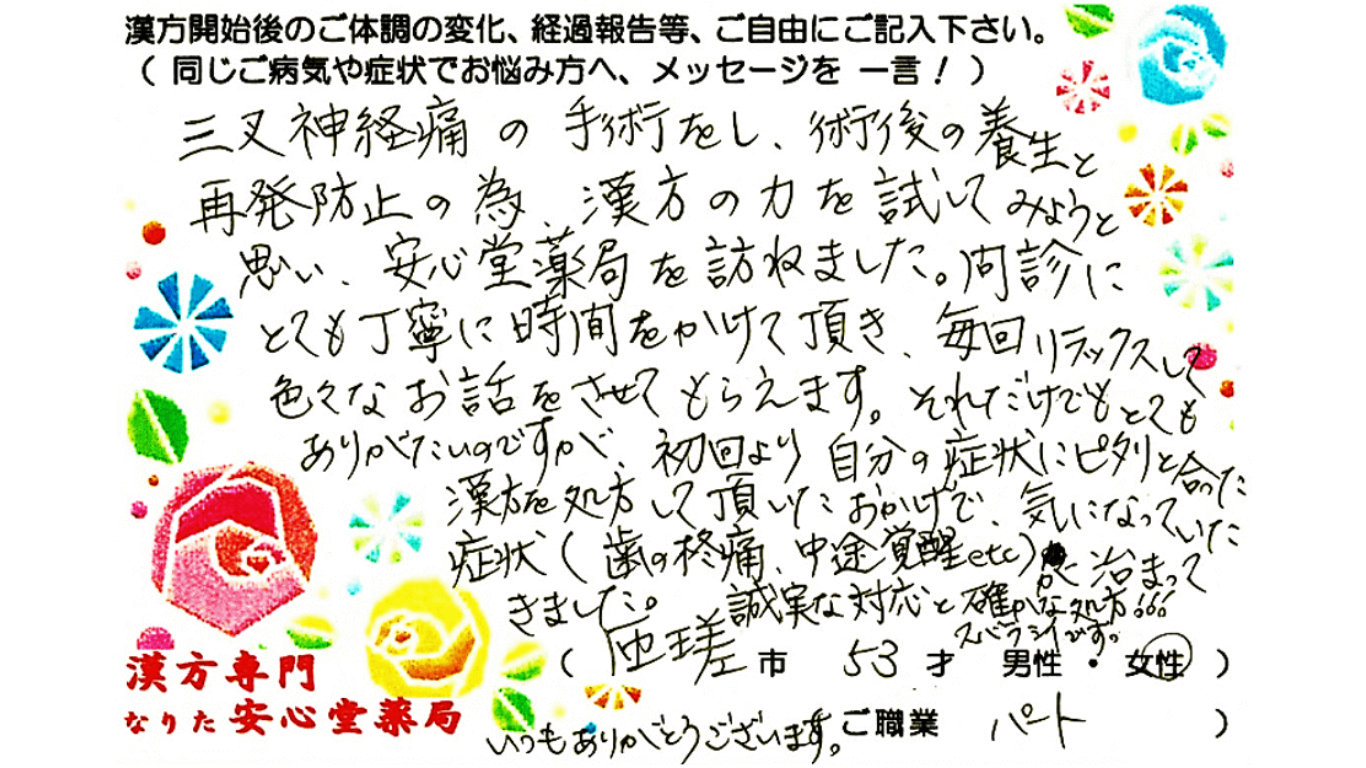 漢方開始後のご体調の変化、経過報告等、ご自由にご記入下さい。
( 同じご病気や症状でお悩み方へ、メッセージを 一言! )
三叉神経痛の手術をし、術後の養生と
再発防止の為、漢方の力を試してみようと
思い、安心堂薬局を訪ねました。問診に
とても丁寧に時間をかけて頂き、毎回リラックスして
色々なお話をさせてもらえます。それだけでもとても
ありがたいのですが、初回より自分の症状にピタリと合った
漢方を処方して頂いたおかげで、気になっていた
症状(歯の疼痛、中途覚醒etc)に治まって
きました。誠実な対応と確かな処方!!!
スバラシイです。
( 匝瑳 市 53 才 男性・女性 )
ご職業 パート )
いつもありがとうございます。
漢方専門
なりた 安心堂薬局